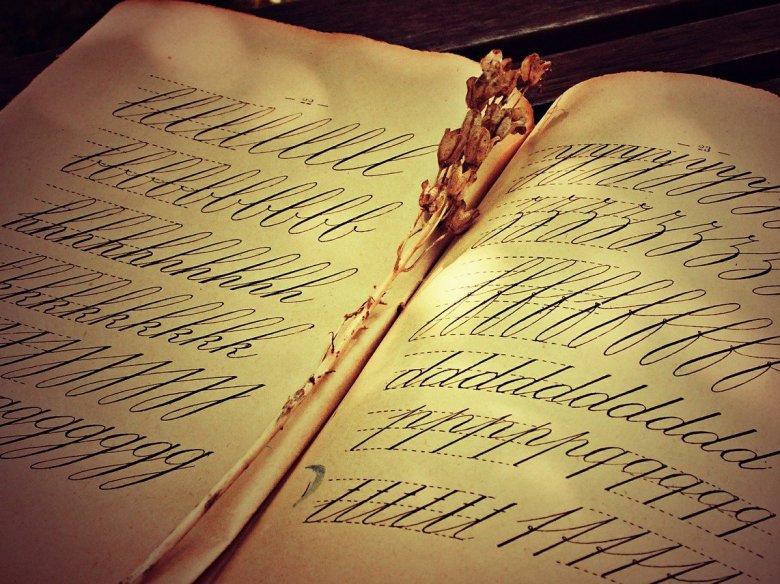 — 22 —
llllllllllll
bbbbbbbbbbbb
hhhhhhhhhhhh
kkkkkkkkkkk
jjjjjjjjj
ggggggggg
— 23 —
yyyyyyyyyyy
zzzzzzzzzz
ffffffffffff
ddddddddddddd
ppppppqqqqqq
ttttttt tttttt